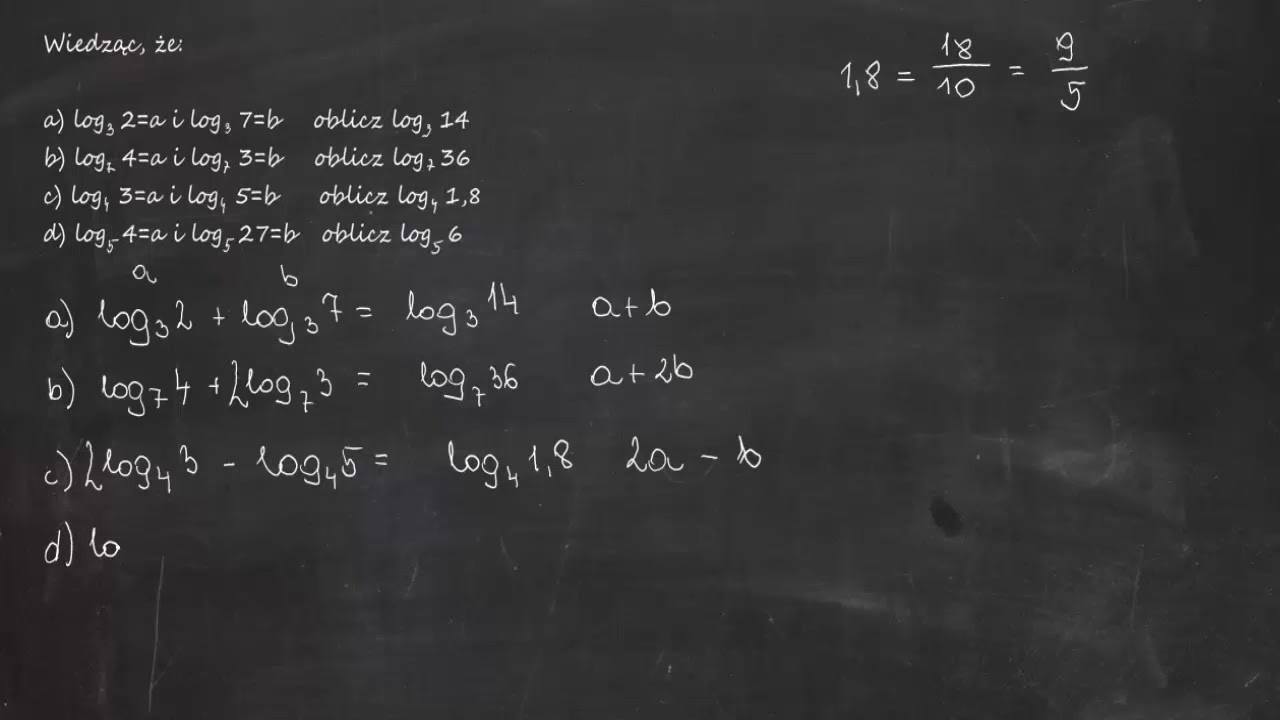 Wiedząc, że:
1,8 = 18/10 = 9/5
a) log₃ 2=a i log₃ 7=b oblicz log₃ 14
b) log₇ 4=a i log₇ 3=b oblicz log₇ 36
c) log₄ 3=a i log₄ 5=b oblicz log₄ 1,8
d) log₅ 4=a i log₅ 27=b oblicz log₅ 6
a b
a) log₃2 + log₃7 = log₃14 a+b
b) log₇4 + 2log₇3 = log₇36 a+2b
c) 2log₄3 - log₄5 = log₄1,8 2a - b
d) lo